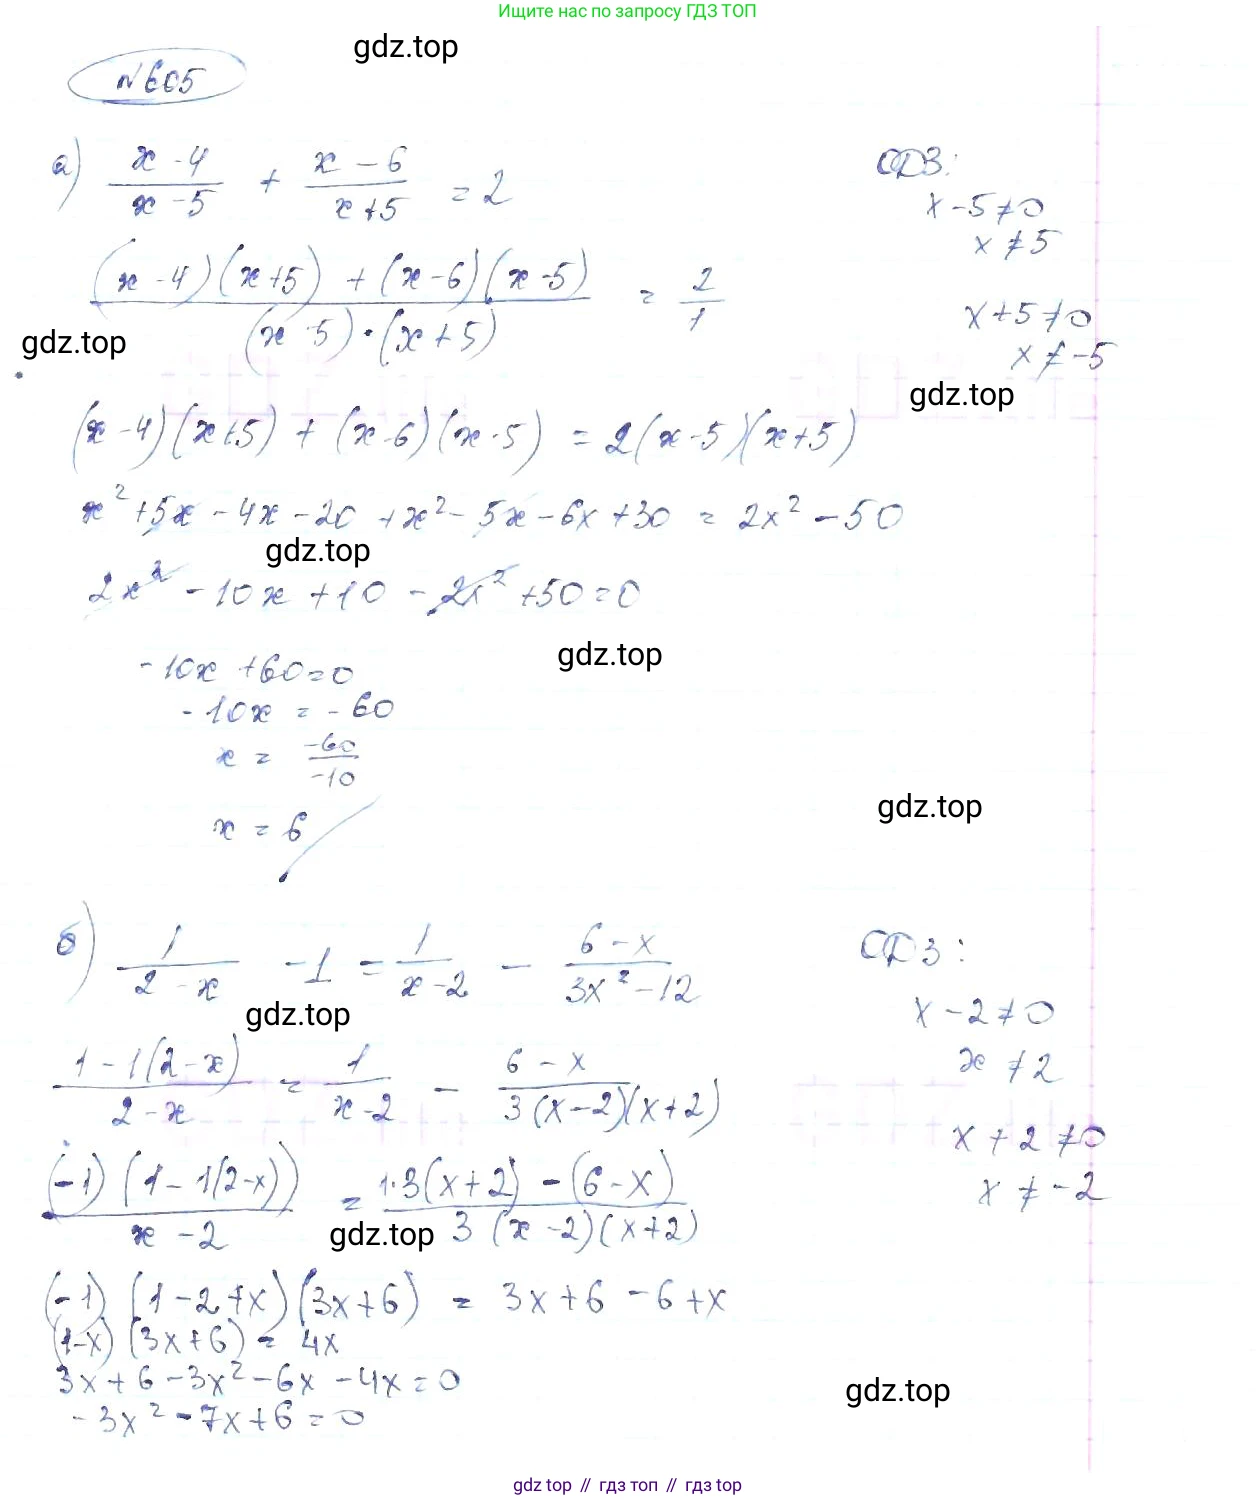 Ищите нас по запросу ГДЗ ТОП
gdz.top
N605
а) (x-4)/(x-5) + (x-6)/(x+5) = 2
ОДЗ:
x-5≠0
x≠5
((x-4)(x+5) + (x-6)(x-5))/((x-5)·(x+5)) = 2/1
x+5≠0
x≠-5
gdz.top
gdz.top
(x-4)(x+5) + (x-6)(x-5) = 2(x-5)(x+5)
x²+5x-4x-20+x²-5x-6x+30 = 2x²-50
gdz.top
2x²-10x+10-2x²+50=0
gdz.top
-10x+60=0
-10x = -60
x = -60/-10
gdz.top
x = 6
б) 1/(2-x) -1 = 1/(x-2) - (6-x)/(3x²-12)
ОДЗ:
gdz.top
x-2≠0
x≠2
(1-1(2-x))/(2-x) = 1/(x-2) - (6-x)/(3(x-2)(x+2))
x+2≠0
x≠-2
((-1)(1-1(2-x)))/(x-2) = (1·3(x+2)-(6-x))/(3(x-2)(x+2))
gdz.top
(-1)(1-2+x)(3x+6) = 3x+6-6+x
(1-x)(3x+6) = 4x
3x+6-3x²-6x-4x=0
gdz.top
-3x²-7x+6=0
gdz top // гдз топ // gdz top